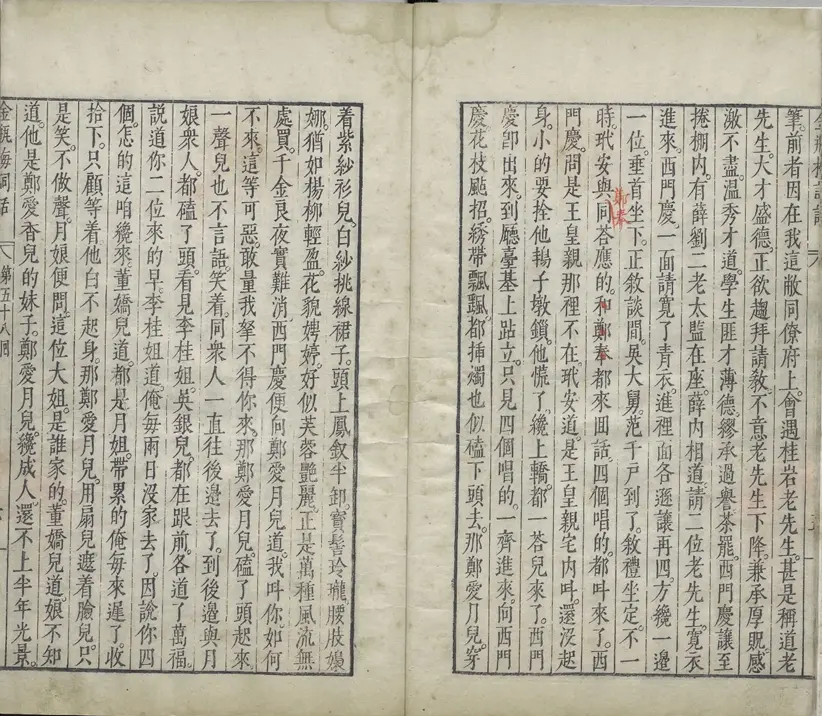 金瓶梅詞話
筆。前者因在我這敝同僚府上。會遇桂岩老先生。甚是稱道老
先生。大才盛德。正欲趨拜請教。不意老先生下降。兼承厚貺。感
激不盡。溫秀才道。學生匪才薄德。謬承過譽。茶罷。西門慶讓至
捲棚內。有薛劉二老太監在座。薛內相道。請二位老先生。寬衣
進來。西門慶。一面請寬了青衣。進裡面各遜讓再四。方纔一邊
一位。垂首坐下。正敘談間。吳大舅。范千戶到了。敘禮坐定。不一
時。玳安與同荅應的。和鄭奉都來囬話。四個唱的。都呌來了。西
鄭奉
門慶。問是王皇親那裡不在。玳安道。是王皇親宅內呌。還沒起
身。小的要拴他鴇子墩鎖。他慌了。纔上轎。都一荅兒來了。西門
慶卽出來。到廳臺基上站立。只見四個唱的。一齊進來。向西門
慶花枝颭招。綉帶飄飄。都揷燭也似磕下頭去。那鄭愛月兒。穿
着紫紗衫兒。白紗挑線裙子。頭上鳳釵半卸。寶髻玲瓏。腰肢嬝
娜。猶如楊柳輕盈。花貌娉婷。好似芙蓉艷麗。正是萬種風流無
處買。千金良夜實難消。西門慶便向鄭愛月兒道。我呌你。如何
不來。這等可惡。敢量我拏不得你來。那鄭愛月兒。磕了頭起來。
一聲兒也不言語。笑着。同衆人一直往後邊去了。到後邊與月
娘衆人。都磕了頭。看見李桂姐。吳銀兒。都在跟前。各道了萬福。
說道你二位來的早。李桂姐道。俺每兩日沒家去了。因說你四
個。怎的這咱纔來。董嬌兒道。都是月姐。帶累的俺每來遲了。收
拾下。只顧等着他。白不起身。那鄭愛月兒。用扇兒遮着臉兒。只
是笑。不做聲。月娘便問。這位大姐。是誰家的。董嬌兒道。娘不知
道。他是鄭愛香兒的妹子。鄭愛月兒。纔成人。還不上半年光景。
金瓶梅詞話
第五十八囬